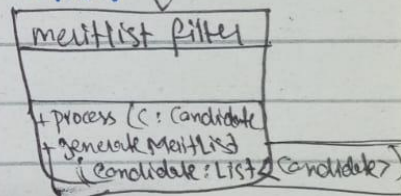 meritlist filter
+ process (C : Candidate
+ generateMeritList
(Candidate : List<Candidate>)